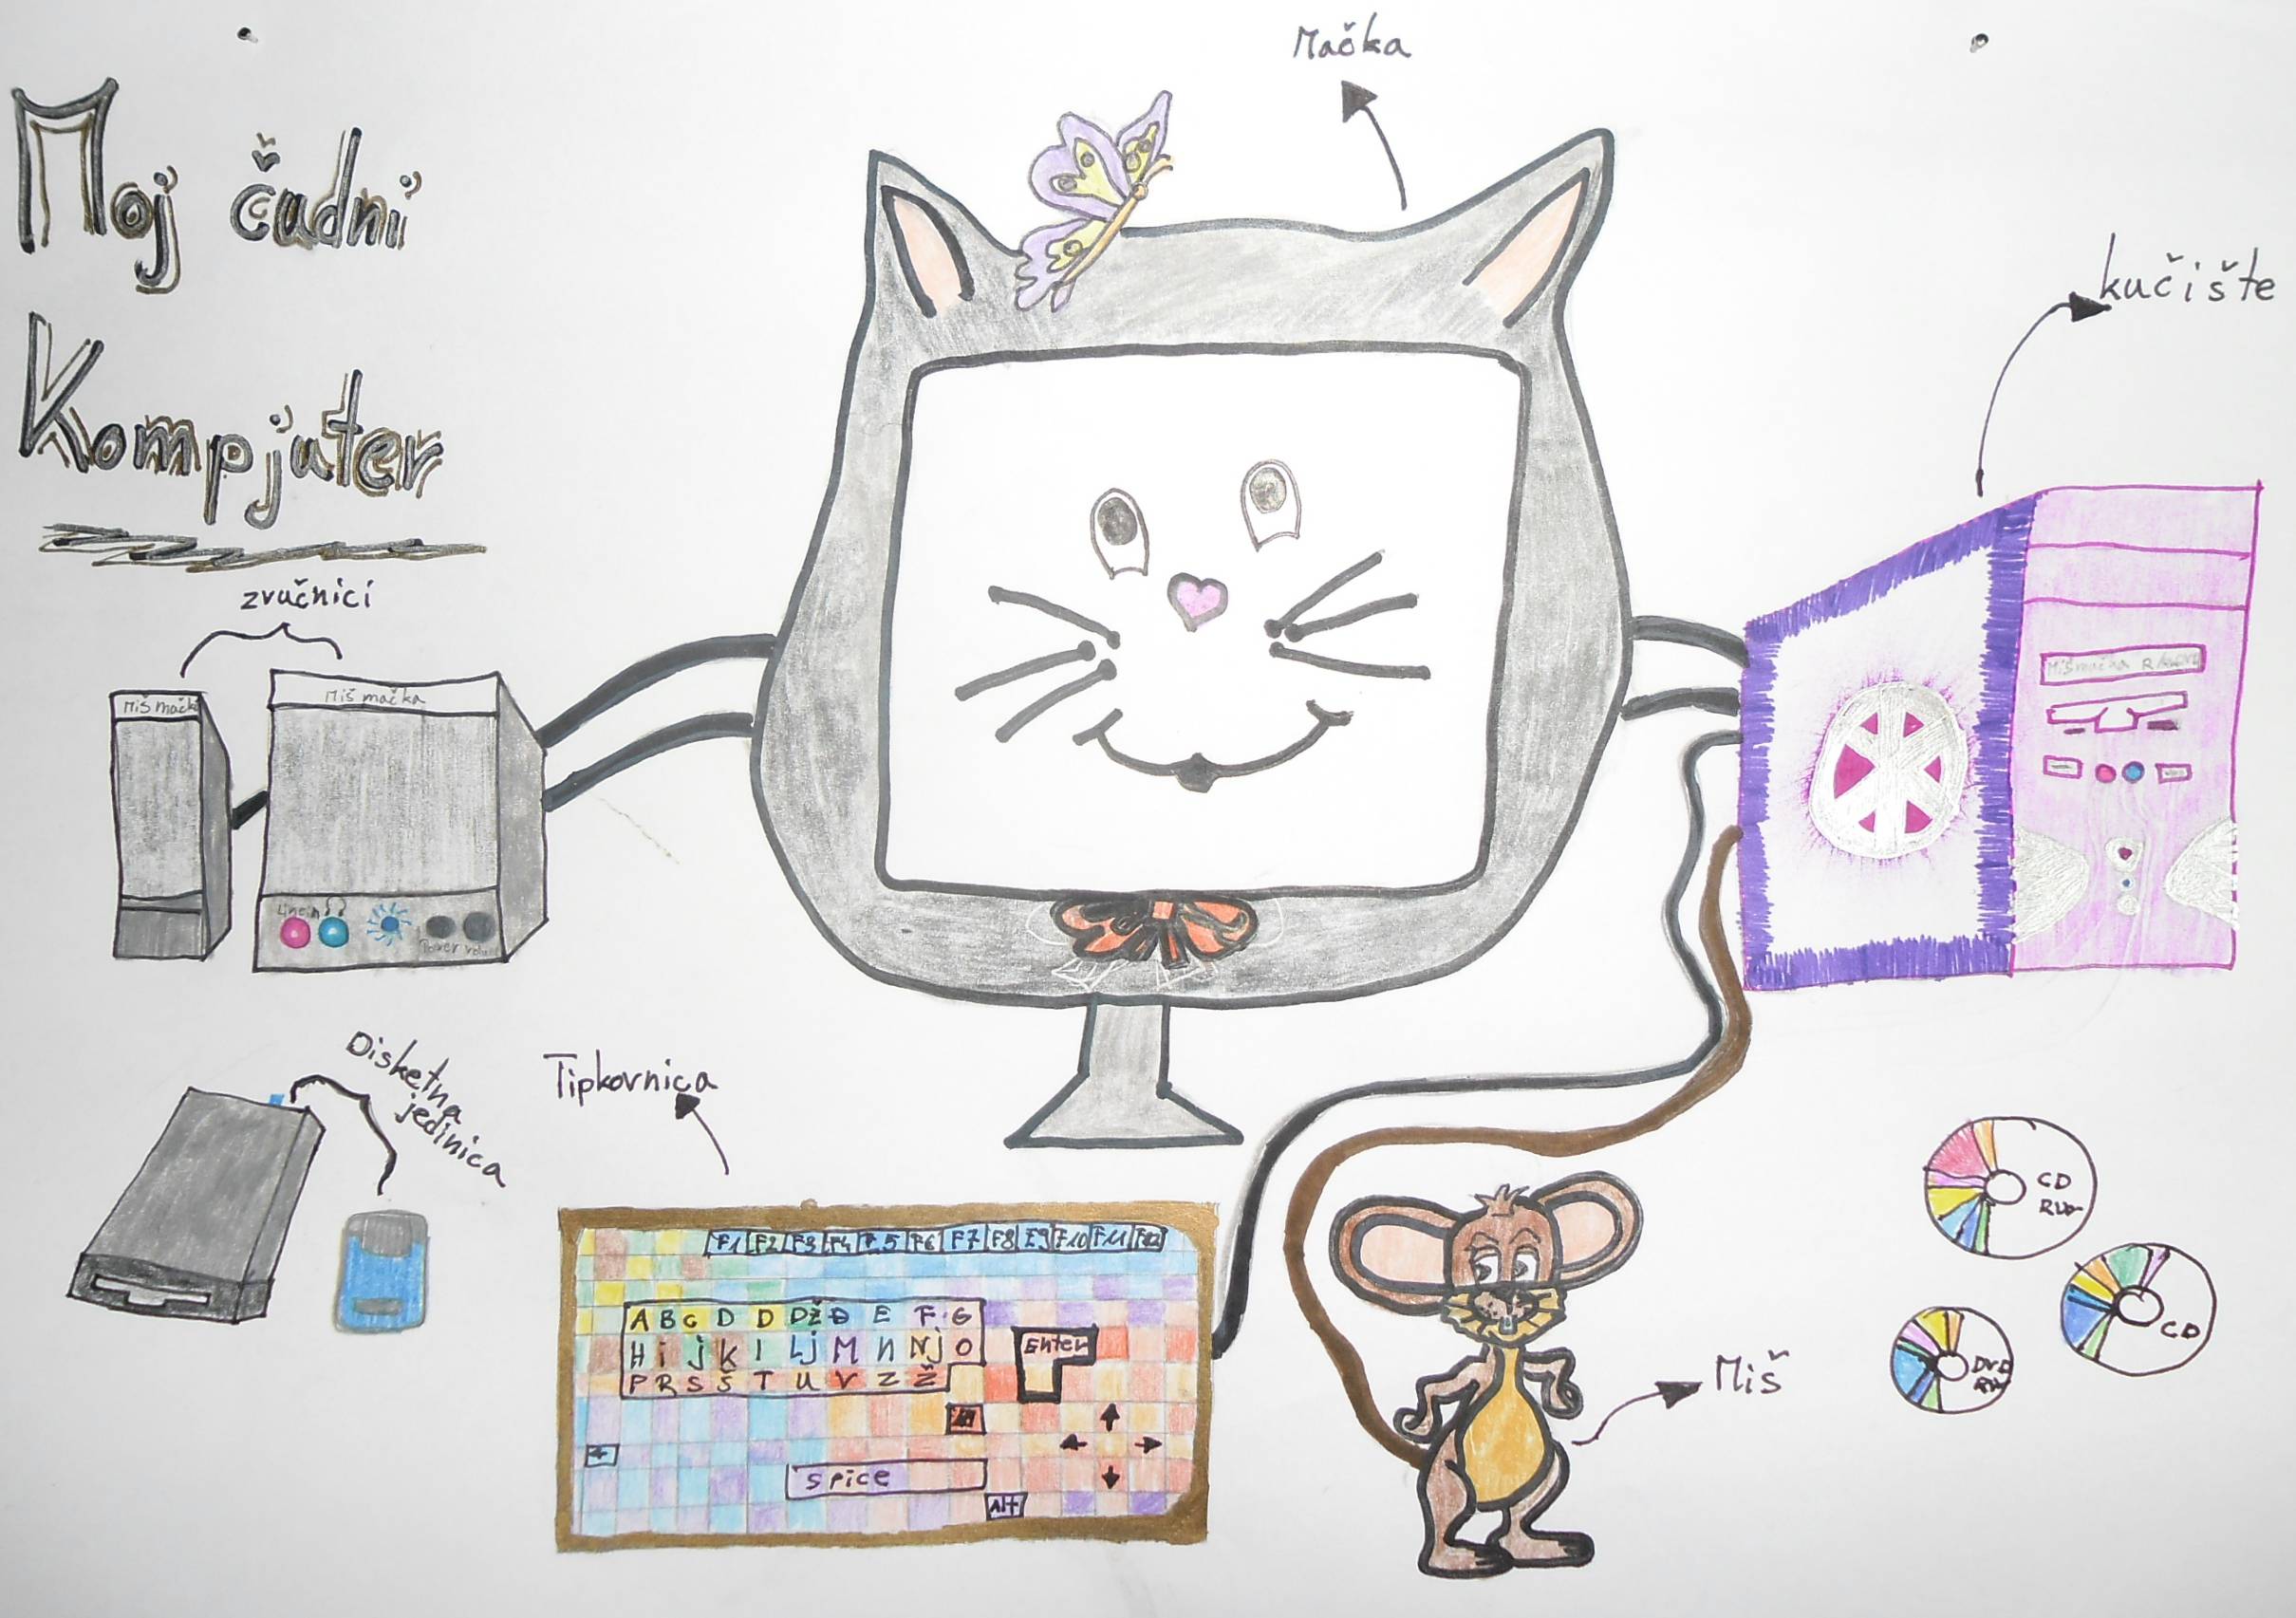 Mačka
Moj čudni
Kompjuter
kučište
zvučnici
Miš mačka
Miš mačka
Miš mačka
Line in
Power
Disketna
jedinica
Tipkovnica
F1 F2 F3 F4 F5 F6 F7 F8 F9 F10 F11 F12
A B C D D Dž Đ E F G
H i j K l Lj M N Nj O
P R S Š T U V Z Ž
Enter
spice
Alt
Miš
CD
RW
CD
DVD
RW